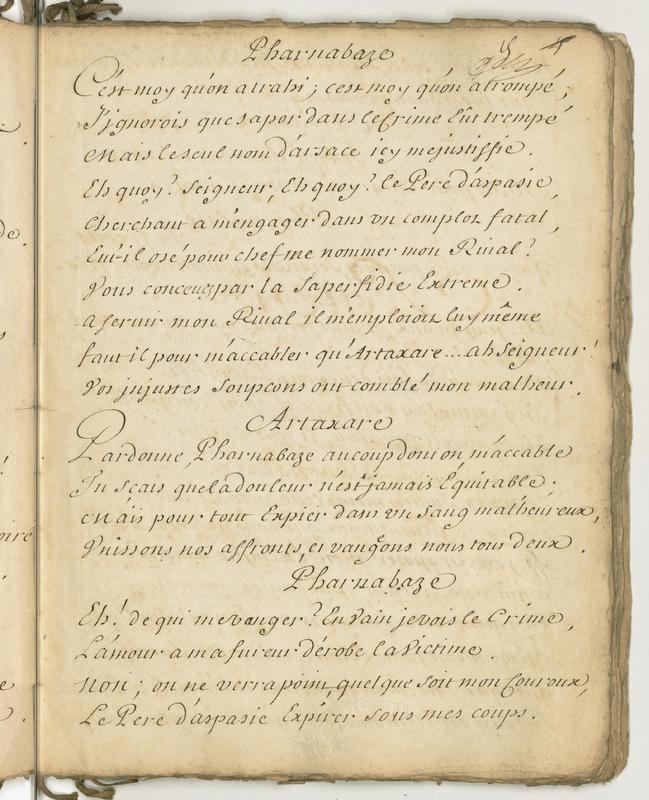 Pharnabaze
C'est moy qu'on a trahi; c'est moy qu'on a trompé;
J'jgnorois que sapor dans le Crime Eût trempé
Mais le seul nom d'arsace icy me justiffie.
Eh quoy? Seigneur, Eh quoy? le Pere d'aspasie
Cherchant a m'engager dans vn complot fatal,
Eut-il osé pour chef me nommer mon Rival?
Vous conceuez par la Sa perfidie Extreme.
a Seruir mon Riual il m'emploioit luy même
faut il pour m'accabler qu'Artaxare.... ah Seigneur!
Vos jnjustes Soupcons ont comblé mon malheur.
Artaxare
Pardonne, Pharnabaze au coup dont on m'accable
Tu scais que la douleur n'est jamais Équitable.
Mais pour tout Expier dans vn Sang malheureux,
Vnissons nos affronts, et vangons nous tous deux.
Pharnabaze
Eh! de qui me vanger? En Vain je vois le Crime,
L'amour a ma fureur dérobe la Victime.
Non; on ne verra point, quelque soit mon Couroux,
Le Pere d'aspasie Expirer sous mes coups.